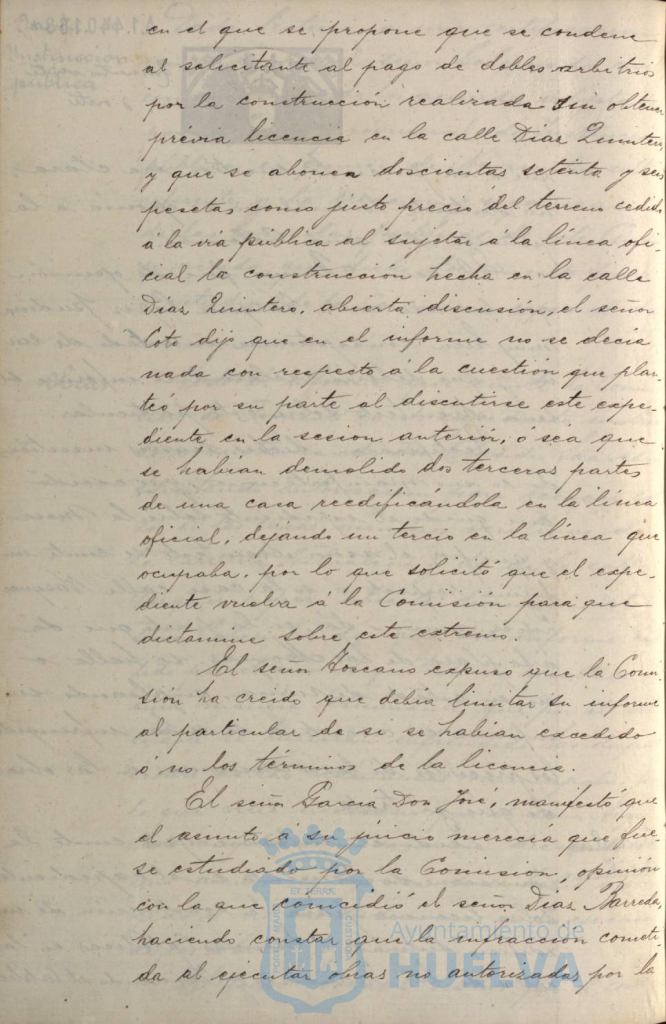 A1.440.168
en el que se propone que se condene
al solicitante al pago de dobles arbitrios
por la construcción realizada sin obtener
prévia licencia en la calle Diaz Quintero,
y que se abonen doscientas setenta y seis
pesetas como justo precio del terreno cedido
á la via pública al sujetar á la línea ofi-
cial la construcción hecha en la calle
Diaz Quintero, abierta discusión, el señor
Coto dijo que en el informe no se decía
nada con respecto á la cuestión que plan-
teó por su parte al discutirse este expe-
diente en la sesion anteriór, ó sea que
se habian demolido dos terceras partes
de una casa reedificándola en la línea
oficial, dejando un tercio en la línea que
ocupaba, por lo que solicitó que el expe-
diente vuelva á la Comisión para que
dictamine sobre este extremo.
El señor Toscano expuso que la Comi-
sión ha creido que debia limitar su informe
al particular de si se habian excedido
ó no los términos de la licencia.
El señor García Don José, manifestó que
el asunto á su juicio merecía que fue-
se estudiado por la Comision, opinión
con la que coincidió el señor Diaz Barreda,
haciendo constar que la infraccion cometi-
da al ejecutar obras no autorizadas por la
Ayuntamiento de
HUELVA